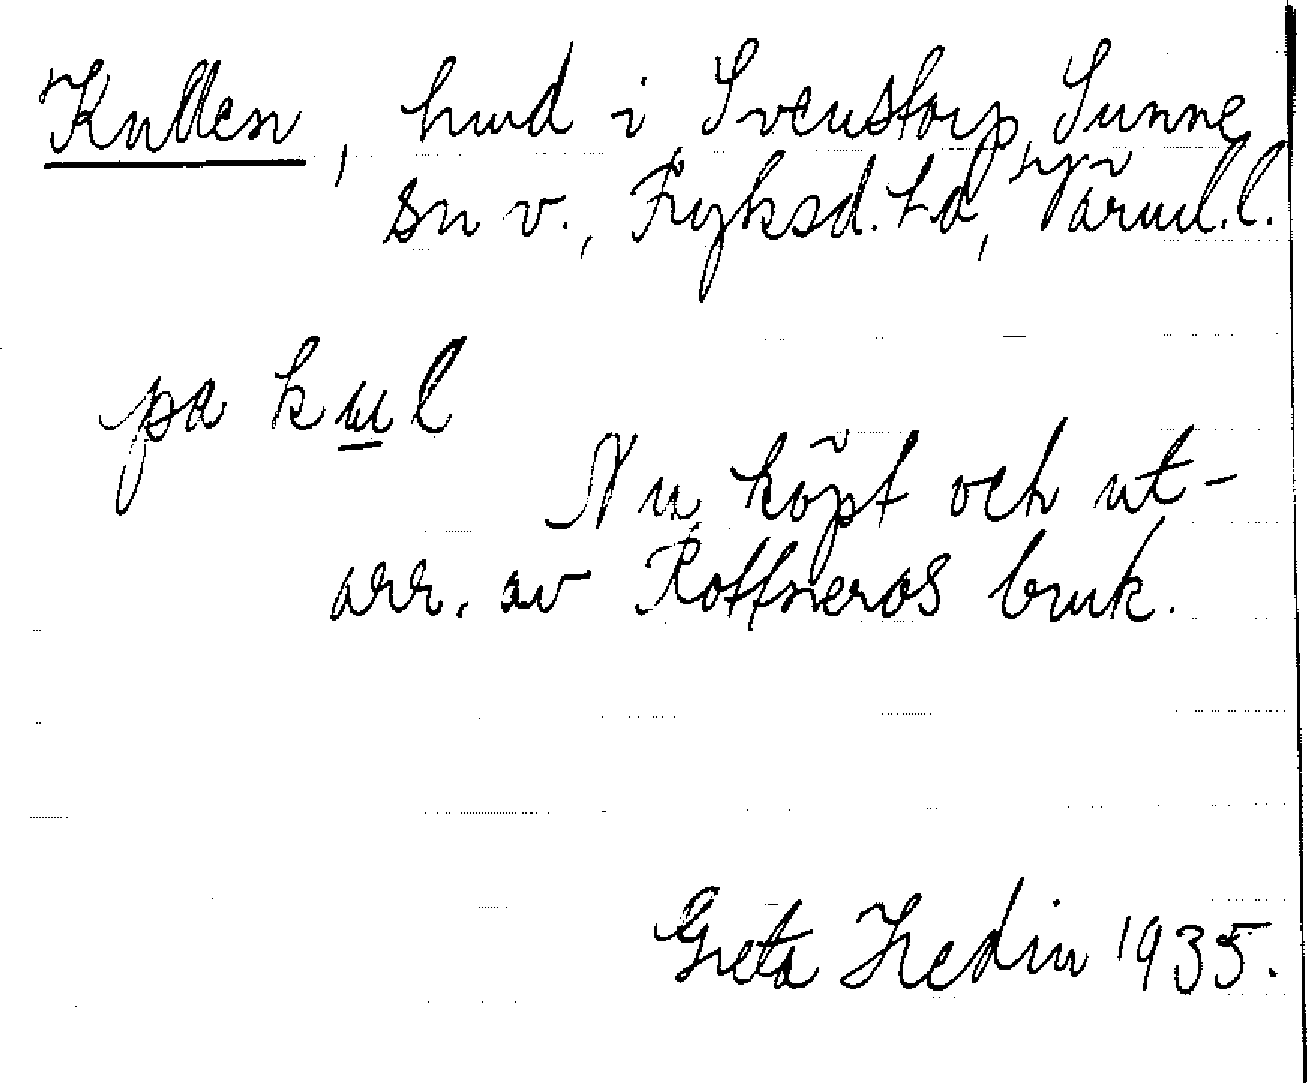 Kullen, hmd i Svenstorp, Sunne
sn v., Fryksd. hd, Värml. l.
pa kul
Nu köpt och ut-
arr. av Rottneros bruk.
Greta Hedin 1935.